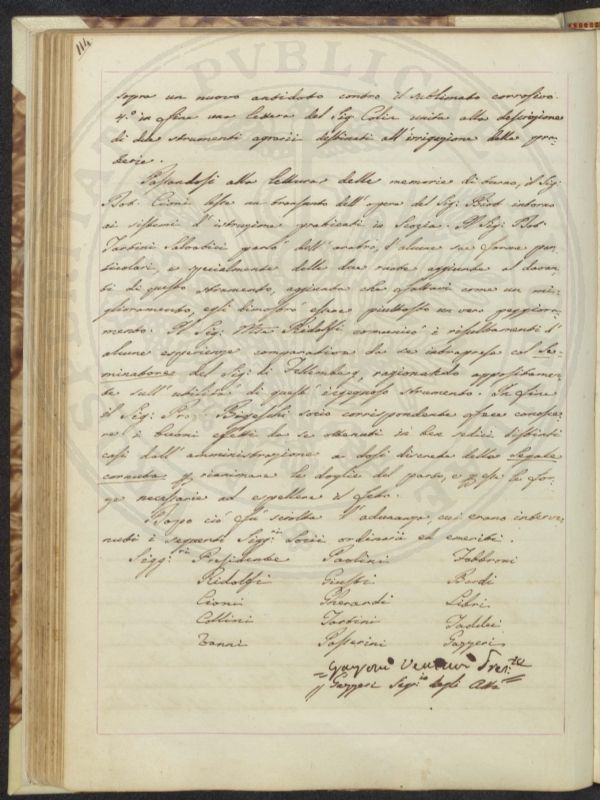 114
sopra un nuovo antidoto contro il sublimato corrosivo.
4.° infine una lettera del Sig. Colin unita alla descrizione
di due strumenti agrarii destinati all'irrigazione delle pra-
terie.
Passandosi alla lettura delle memorie di turno, il Sig.
Dot. Cioni lesse un transunto dell'opera del Sig. Bird intorno
ai sistemi d'istruzione praticati in Scozia. Il Sig. Dot.
Tartini Salvatici parlò dell'aratro, d'alcune sue forme par-
ticolari, e specialmente delle due ruote aggiunte al davan-
ti di questo strumento, aggiunta che spesso come un mi-
glioramento, egli dimostrò essere piuttosto un vero peggiora-
mento. Il Sig. Ridolfi comunicò i resultamenti d'
alcune esperienze comparative da se intraprese col Se-
minatore del Sig. di Fellemberg, ragionando appositamen-
te sull'utilità di questo ingegnoso strumento. Infine
il Sig. Prof. socio corrispondente fece conosce-
re i buoni effetti da se ottenuti in ben sedici distinti
casi dall'amministrazione a dosi discrete della Segale
cornuta p. rianimare le doglie del parto, e p. le for-
ze necessarie ad espellere il feto.
Dopo ciò fu sciolta l'adunanza, cui erano interve-
nuti i seguenti Sigg.ri Socii ordinarii ed emeriti.
Sigg.ri Presidente Paolini Fabbroni
Ridolfi Giusti Bardi
Cioni Gherardi Libri
Collini Tartini Taddei
Nanni Passerini Gazzeri
Gazzeri Seg.rio degli Atti